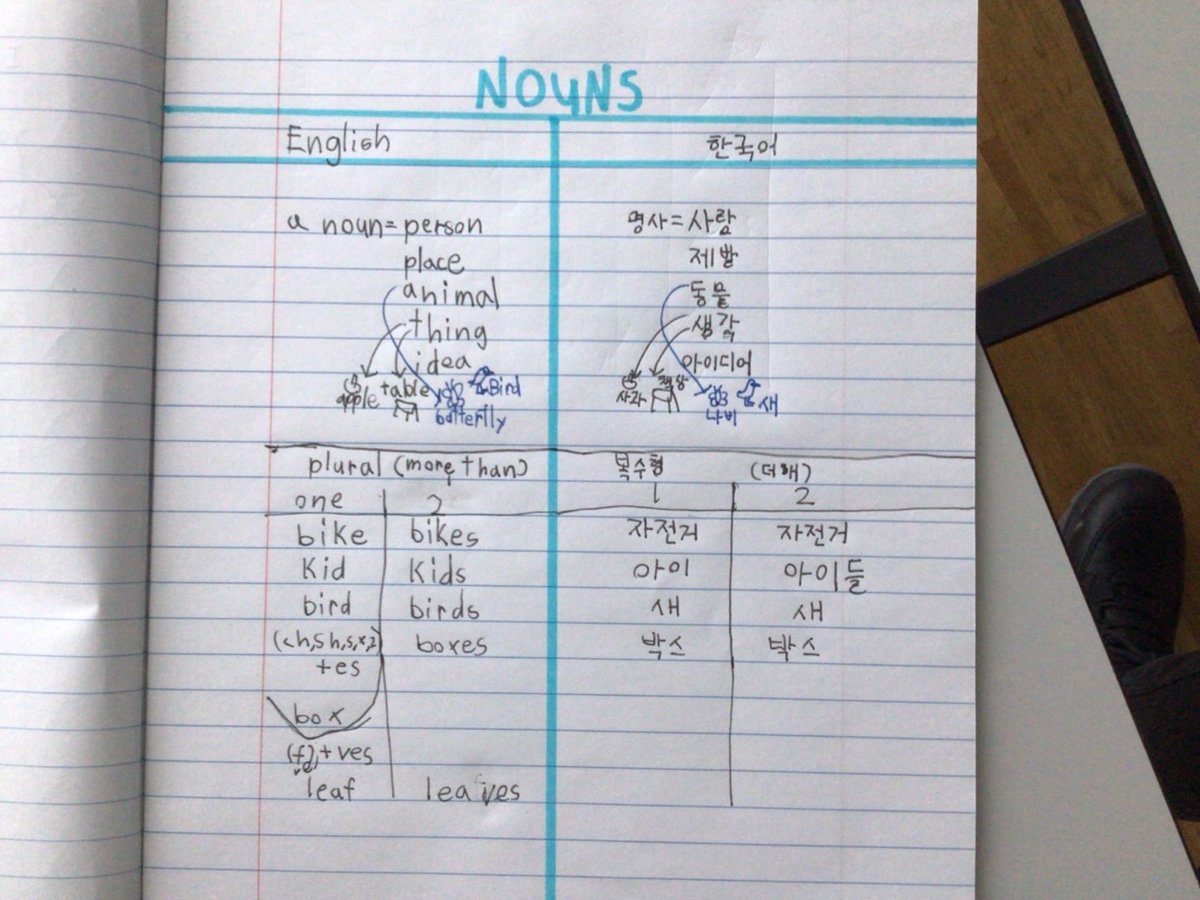 NOUNS
English 한국어
a noun = person 명사 = 사람
place 제방
animal 동물
thing 생각
idea 아이디어
apple table Bird 사과 책상 새
butterfly 나비
plural (more than) 복수형 (더해)
one 2 1 2
bike bikes 자전거 자전거
Kid Kids 아이 아이들
bird birds 새 새
(ch,sh,s,x,z) boxes 박스 박스
+es
box
(f) + ves
leaf leaves